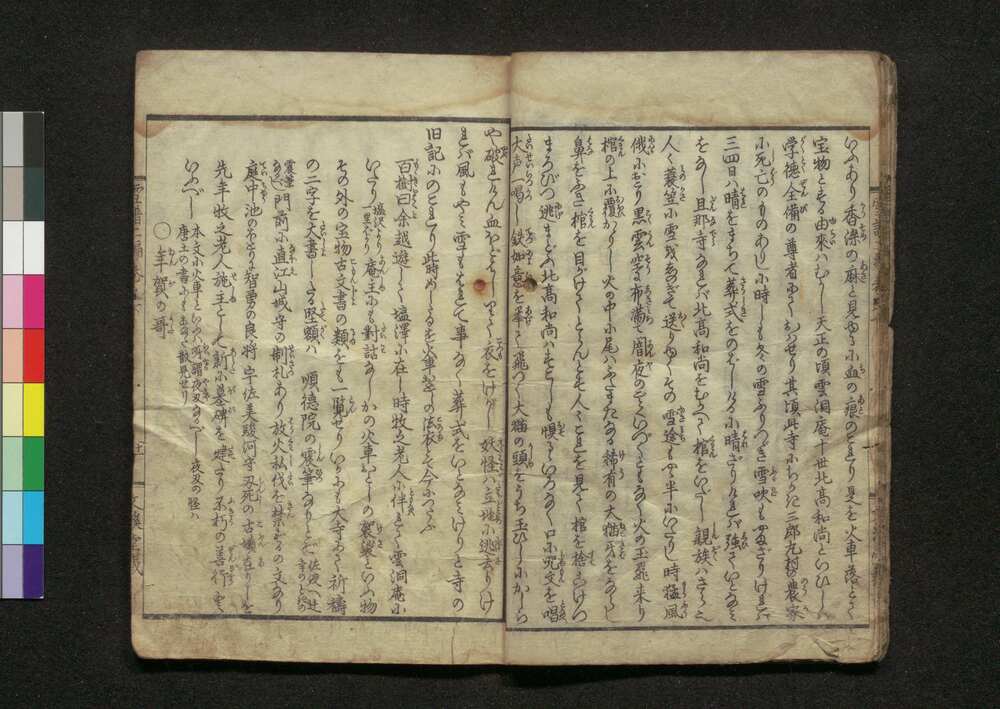 いふあり香染の麻と見ゆるに血の痕のこれり是を火車落とて
宝物とする由来はむかし天正の頃雲洞庵十世北高和尚といひしは
学徳全備の尊者にてありせり其頃此寺にちかき三郎丸村の農家
に死亡のものありしに時しも冬の雪ふりつゞき雪吹もやまざりければ
三四日は晴をまちて葬式をのばしけるに晴ざりければ強ていとなみ
をなし旦那寺なれば北高和尚をむかへて棺をいだし親族はさらなり
人〻蓑笠に雪を凌ぎて送りゆくその雪途もやゝ半にいたりし時猛風
俄におこり黒雲空に布満て闇夜のごとくいづくともなく火の玉飛来り
棺の上に覆かゝりし火の中に尾はふたまたなる稀有の大猫牙をならし
鼻をふき棺を目がけてとらんとす人〻これを見て棺を捨こけつ
まろびつ逃まどふ北高和尚はすこしも惧るゝいろなく口に咒文を唱
大声一喝し鉄如意を挙て飛つく大猫の頭をうち玉ひしにかしら
や破けん血ほどばしりて衣をけがし妖怪は立地に逃去りけ
れば風もやみ雪もはれて事なく葬式をいとなみけりと寺の
旧記にのこれり此時めしたるを火車おとしの法衣とて今につたふ
百樹曰余越遊して塩沢に在し時牧之老人に伴れて雲洞庵に
いたり塩沢より一里あまり庵主にも対話なしかの火車おとしの袈裟といふ物
その外の宝物古文書の類をも一覧せりいかにも大寺にて祈禱
の二字を大書しる竪額は順徳院の震筆なりとぞ佐渡へ迁幸のとき
震筆なり門前に直江山城守の制札あり放火私伐を禁ずるの文なり
庭中池のほとりに智勇の良将宇佐美駿河守刃死の古墳在りしを
先年牧之老人施主として新に墓碑を建たり不朽の善行といふべし
本文に火車といふは所謂夜叉なるべし夜叉の怪は
唐土の書にもまゝ散見せり
○年賀の哥